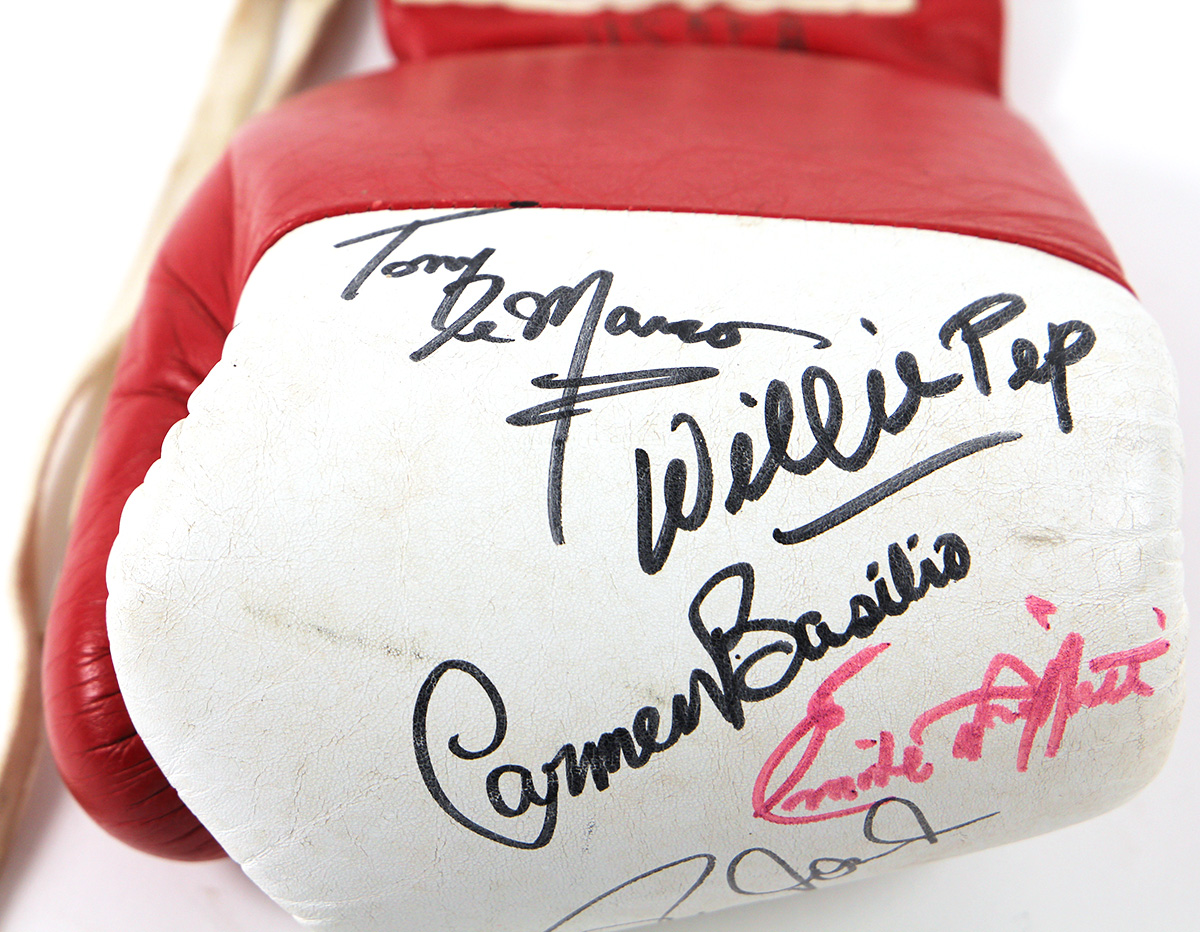 Tony
De Marco
Willie Pep
Carmen Basilio
Emile Griffith